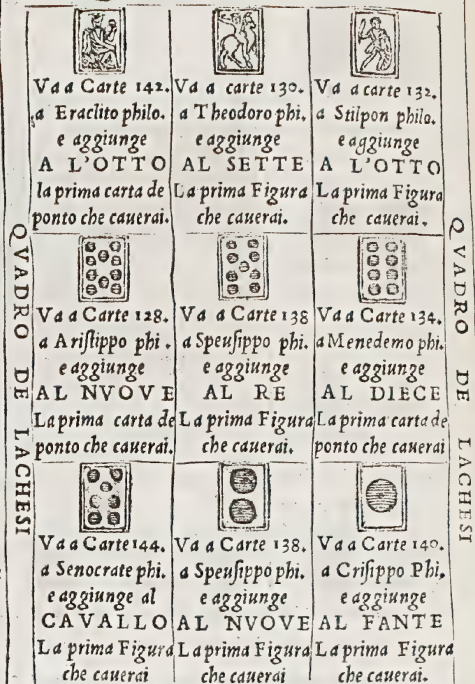 Va a Carte 142.
a Eraclito philo.
e aggiunge
A L'OTTO
la prima carta de
ponto che cauerai.
Va a carte 130.
a Theodoro phi.
e aggiunge
AL SETTE
La prima Figura
che cauerai.
Va a carte 132.
a Stilpon philo.
e aggiunge
A L'OTTO
La prima Figura
che cauerai.
QVADRO DE LACHESI
Va a Carte 128.
a Ariſtippo phi.
e aggiunge
AL NVOVE
La prima carta de
ponto che cauerai.
Va a Carte 138
a Speuſippo phi.
e aggiunge
AL RE
La prima Figura
che cauerai.
Va a Carte 134.
a Menedemo phi.
e aggiunge
AL DIECE
La prima carta de
ponto che cauerai
QVADRO DE LACHESI
Va a Carte 144.
a Senocrate phi.
e aggiunge al
CAVALLO
La prima Figura
che cauerai
Va a Carte 138.
a Speuſippo phi.
e aggiunge
AL NVOVE
La prima Figura
che cauerai
Va a Carte 140.
a Criſippo Phi,
e aggiunge
AL FANTE
La prima Figura
che cauerai.